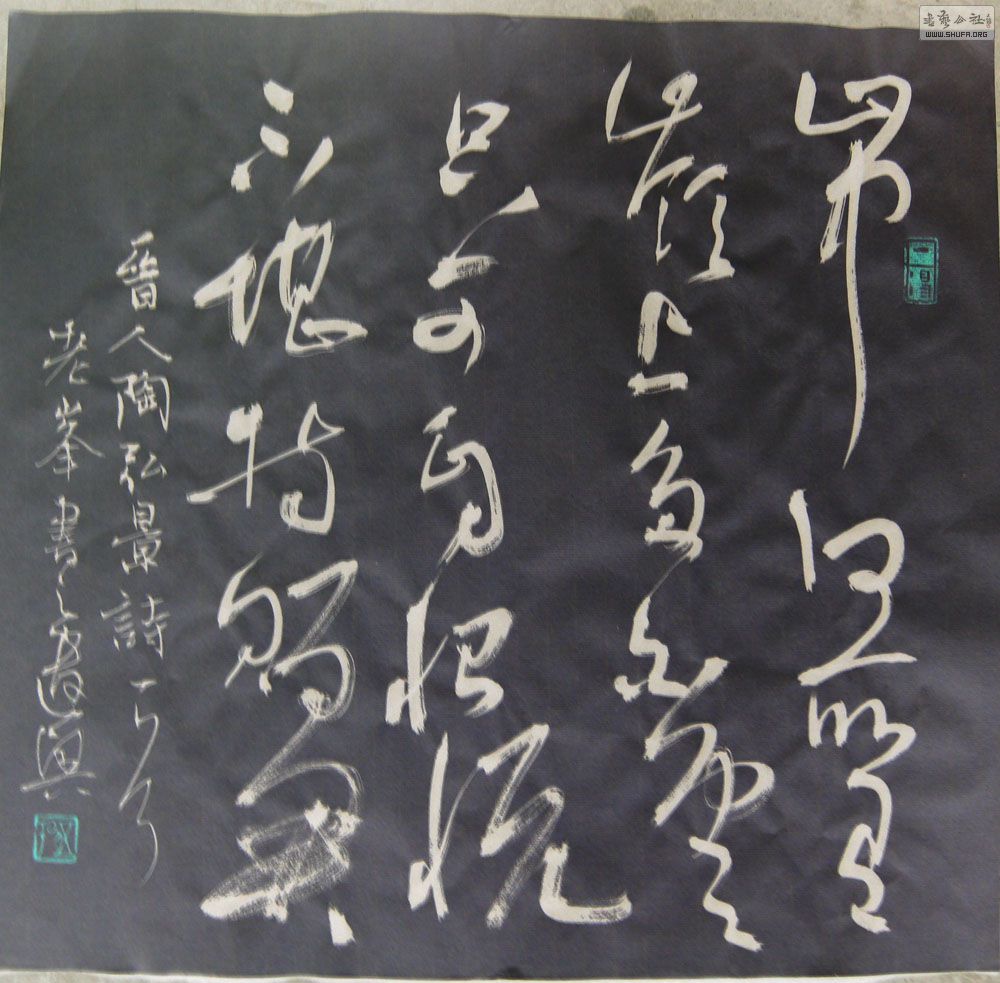 山中何所有
嶺上多白雲
只可自怡悦
不堪持贈君
晉人陶弘景詩一首
老峯書之遣興
書藝公社
WWW.SHUFA.ORG